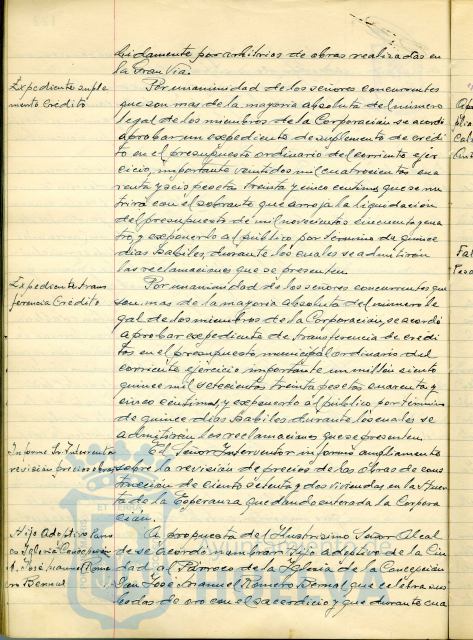 bidamente por arbitrios de obras realizadas en
la Gran Via.
Expediente suple
mento Crédito
Por unanimidad de los señores concurrentes
que son mas de la mayoria absoluta del número
legal de los miembros de la Corporación se acordó
aprobar un expediente de suplemento de crédi
to en el presupuesto ordinario del corriente ejer
cicio, importante ventidos mil cuatrocientos cua
renta y seis pesetas treinta y cinco centimos que se nu
trirá con el sobrante que arroja la liquidación
del presupuesto de mil novecientos cincuenta y cua
tro, y exponerlo al público por termino de quince
dias habiles, durante los cuales se admitirán
las reclamaciones que se presenten.
Expediente trans
ferencia Crédito
Por unanimidad de los señores concurrentes que
son mas de la mayoria absoluta del número le
gal de los miembros de la Corporación, se acordó
aprobar expediente de transferencia de crédi
tos en el presupuesto municipal ordinario del
corriente ejercicio importante un millón ciento
quince mil setecientas treinta pesetas cuarenta y
cinco centimos, y exponerlo al público por término
de quince dias habiles durante los cuales se
admitirán las reclamaciones que se presenten.
Informe Sr. Interventor
revisión precios obras
El Señor Interventor informó ampliamente
sobre la revisión de precios de las Obras de cons
trucción de ciento setenta y dos viviendas en la Huer
ta de la Esperanza quedando enterada la Corpora
ción.
Hijo Adoptivo Parro
co Iglesia Concepción
D. José Manuel Rome
ro Bernal
A propuesta del Ilustrisimo Señor Alcal
de se acordó nombrar Hijo adoptivo de la Ciu
dad al Párroco de la Iglesia de la Concepción
Don José Manuel Romero Bernal, que celebra sus
bodas de oro con el sacerdocio y que durante cua
Ayuntamiento de